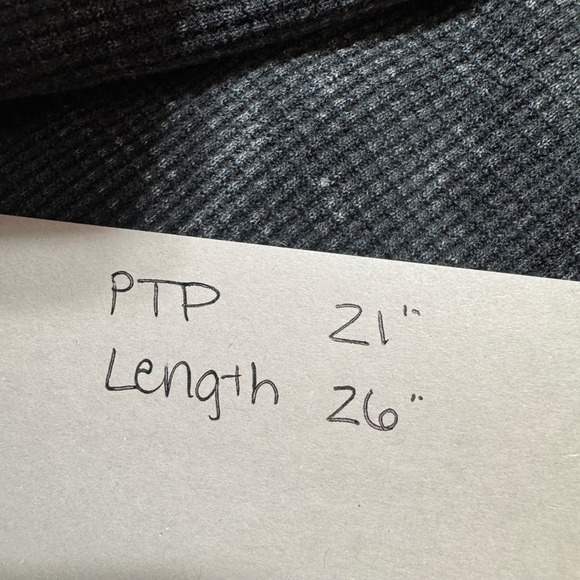 PTP 21"
Length 26"